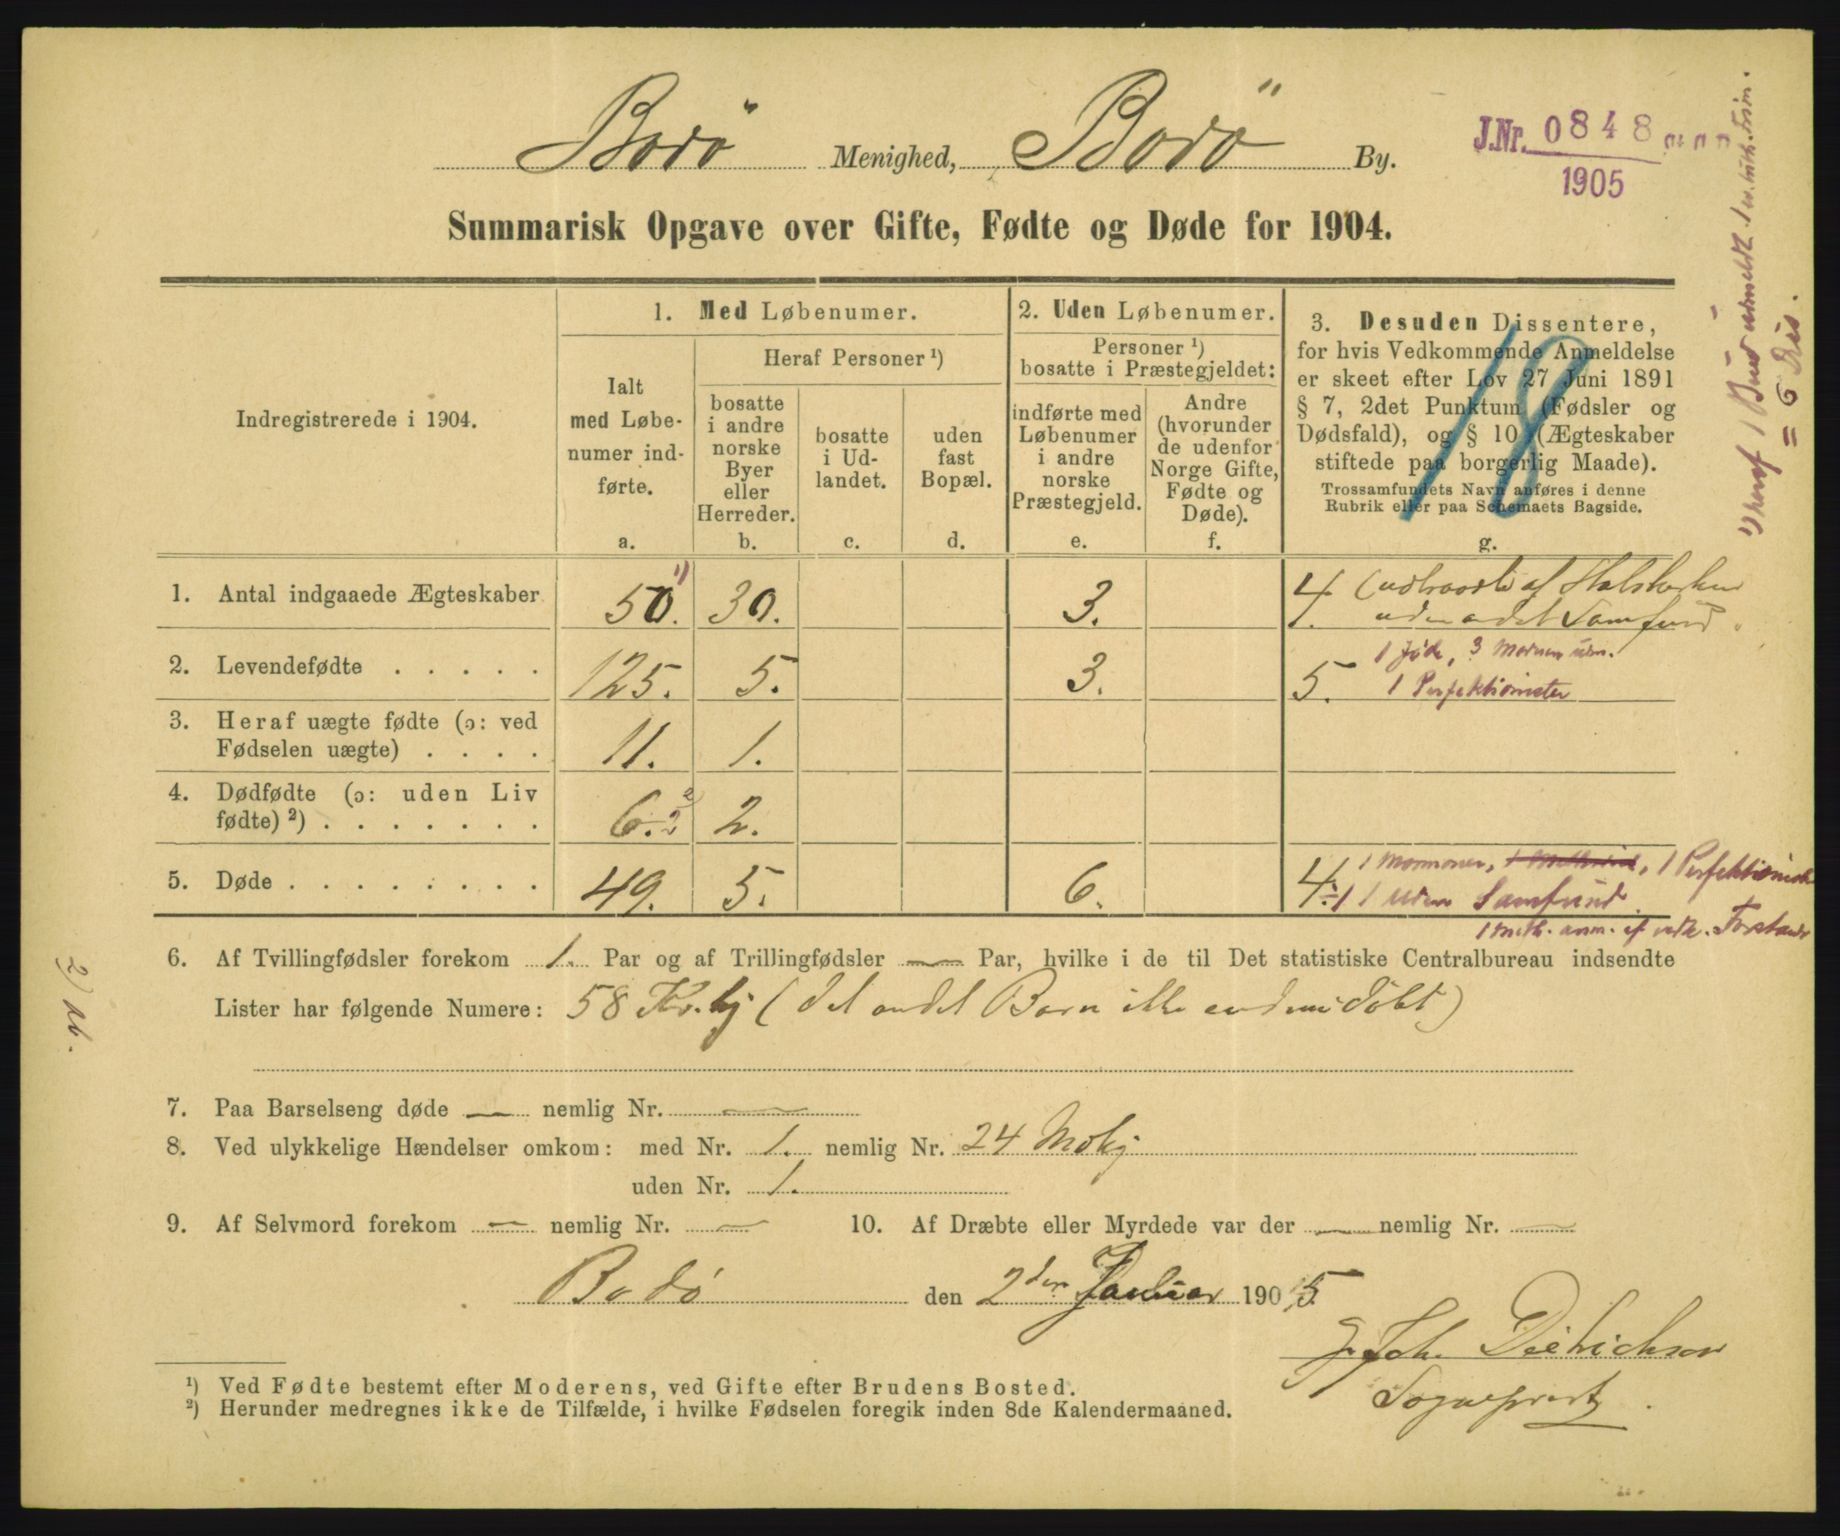 Bodø Menighed, Bodø By.
J.Nr. 0848
1905
Summarisk Opgave over Gifte, Fødte og Døde for 1904.
Indregistrerede i 1904.
1. Med Løbenumer.
Ialt
med Løbe-
numer ind-
førte.
a.
Heraf Personer ¹)
bosatte
i andre
norske
Byer
eller
Herreder.
b.
bosatte
i Ud-
landet.
c.
uden
fast
Bopæl.
d.
2. Uden Løbenumer.
Personer ¹)
bosatte i Præstegjeldet:
indførte med
Løbenumer
i andre
norske
Præstegjeld.
e.
Andre
(hvorunder
de udenfor
Norge Gifte,
Fødte og
Døde).
f.
3. Desuden Dissentere,
for hvis Vedkommende Anmeldelse
er skeet efter Lov 27 Juni 1891
§ 7, 2det Punktum (Fødsler og
Dødsfald), og § 10 (Ægteskaber
stiftede paa borgerlig Maade).
Trossamfundets Navn anføres i denne
Rubrik eller paa Schemaets Bagside.
g.
18
1. Antal indgaaede Ægteskaber 50. ¹) 30. 3. 4 (udtraadte af Statskirken
uden andet Samfund.
2. Levendefødte . . . . . 125. 5. 3. 5. 1 Jøde, 3 Mormon
1 Perfektionister
3. Heraf uægte fødte (ɔ: ved
Fødselen uægte) . . . . 11. 1.
4. Dødfødte (ɔ: uden Liv
fødte) ²) . . . . . . . 6. 2.
5. Døde . . . . . . . . 49. 5. 6. 4 ÷1 1 Mormoner, 1 Perfektionist
1 uden Samfund
1 Meth. anm. af vedk. Forstander
6. Af Tvillingfødsler forekom 1. Par og af Trillingfødsler — Par, hvilke i de til Det statistiske Centralbureau indsendte
Lister har følgende Numere: 58 Kv.kj (det andet Barn ikke endnu døbt)
7. Paa Barselseng døde — nemlig Nr. —
8. Ved ulykkelige Hændelser omkom: med Nr. 1. nemlig Nr. 24 Mdkj
uden Nr. 1.
9. Af Selvmord forekom — nemlig Nr. — 10. Af Dræbte eller Myrdede var der — nemlig Nr. —
Bodø den 2den Januar 1905.
Dietrichson
Sogneprest
¹) Ved Fødte bestemt efter Moderens, ved Gifte efter Brudens Bosted.
²) Herunder medregnes ikke de Tilfælde, i hvilke Fødselen foregik inden 8de Kalendermaaned.
¹) heraf 1
= 6 Dis.